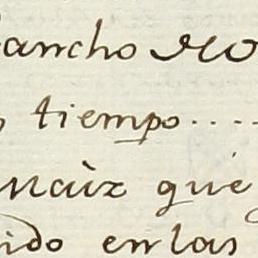 ancho
tiempo....
maiz que
ido en las